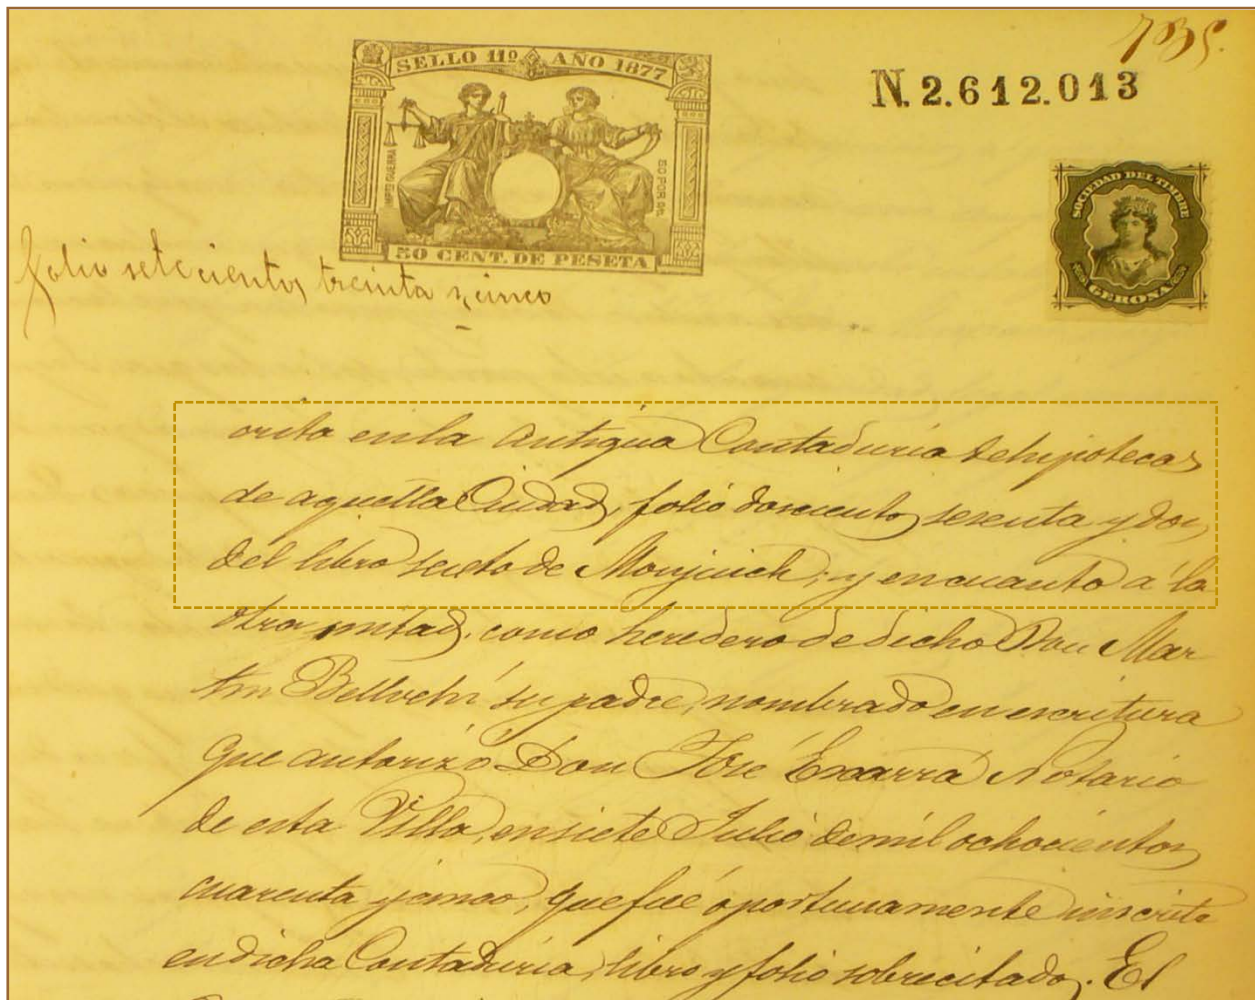 735.
SELLO 11º AÑO 1877
N. 2.612.013
IMPTO GUERRA
50 POR 0/0
50 CENT. DE PESETA
SOCIEDAD DEL TIMBRE
GERONA
folio setecientos treinta y cinco
crita en la antigua Contaduria de hipotecas
de aquella Ciudad, folio doscientos sesenta y dos,
del libro secto de Monjuich; y en cuanto á la
otra mitad, como heredero de dicho Don Mar
tin Bellvehí su padre, nombrado en escritura
que autorizó Don José Exarrá Notario
de esta Villa, en siete Julio de mil ochocientos
cuarenta y cinco, que fué oportunamente inscrita
en dicha Contaduria, libro y folio sobrecitados. El